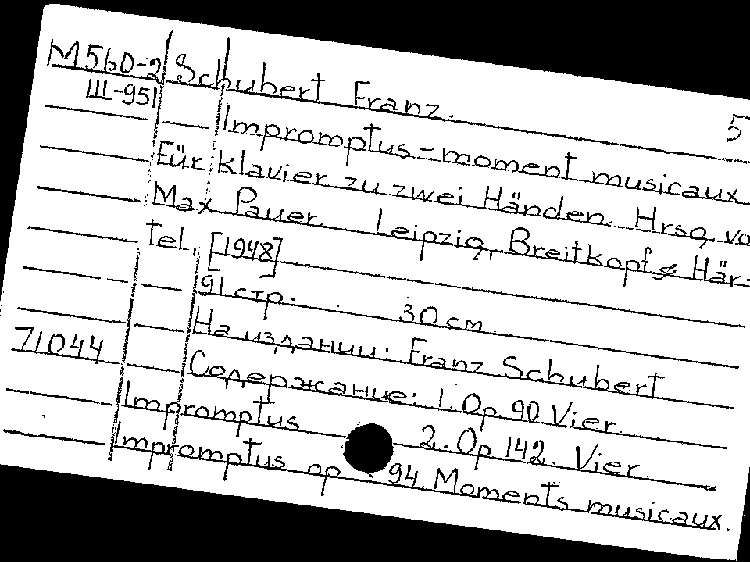 M560-2 Schubert Franz.
III-951 5
Impromptus-moment musicaux
Für klavier zu zwei Händen. Hrsg. vo
Max Pauer Leipzig, Breitkopf & Här-
tel, [1948]
91 стр. 30 см
На издании: Franz Schubert
71044 Содержание: 1. Op 90 Vier
Impromptus 2. Op 142. Vier
Impromptus op 94 Moments musicaux.